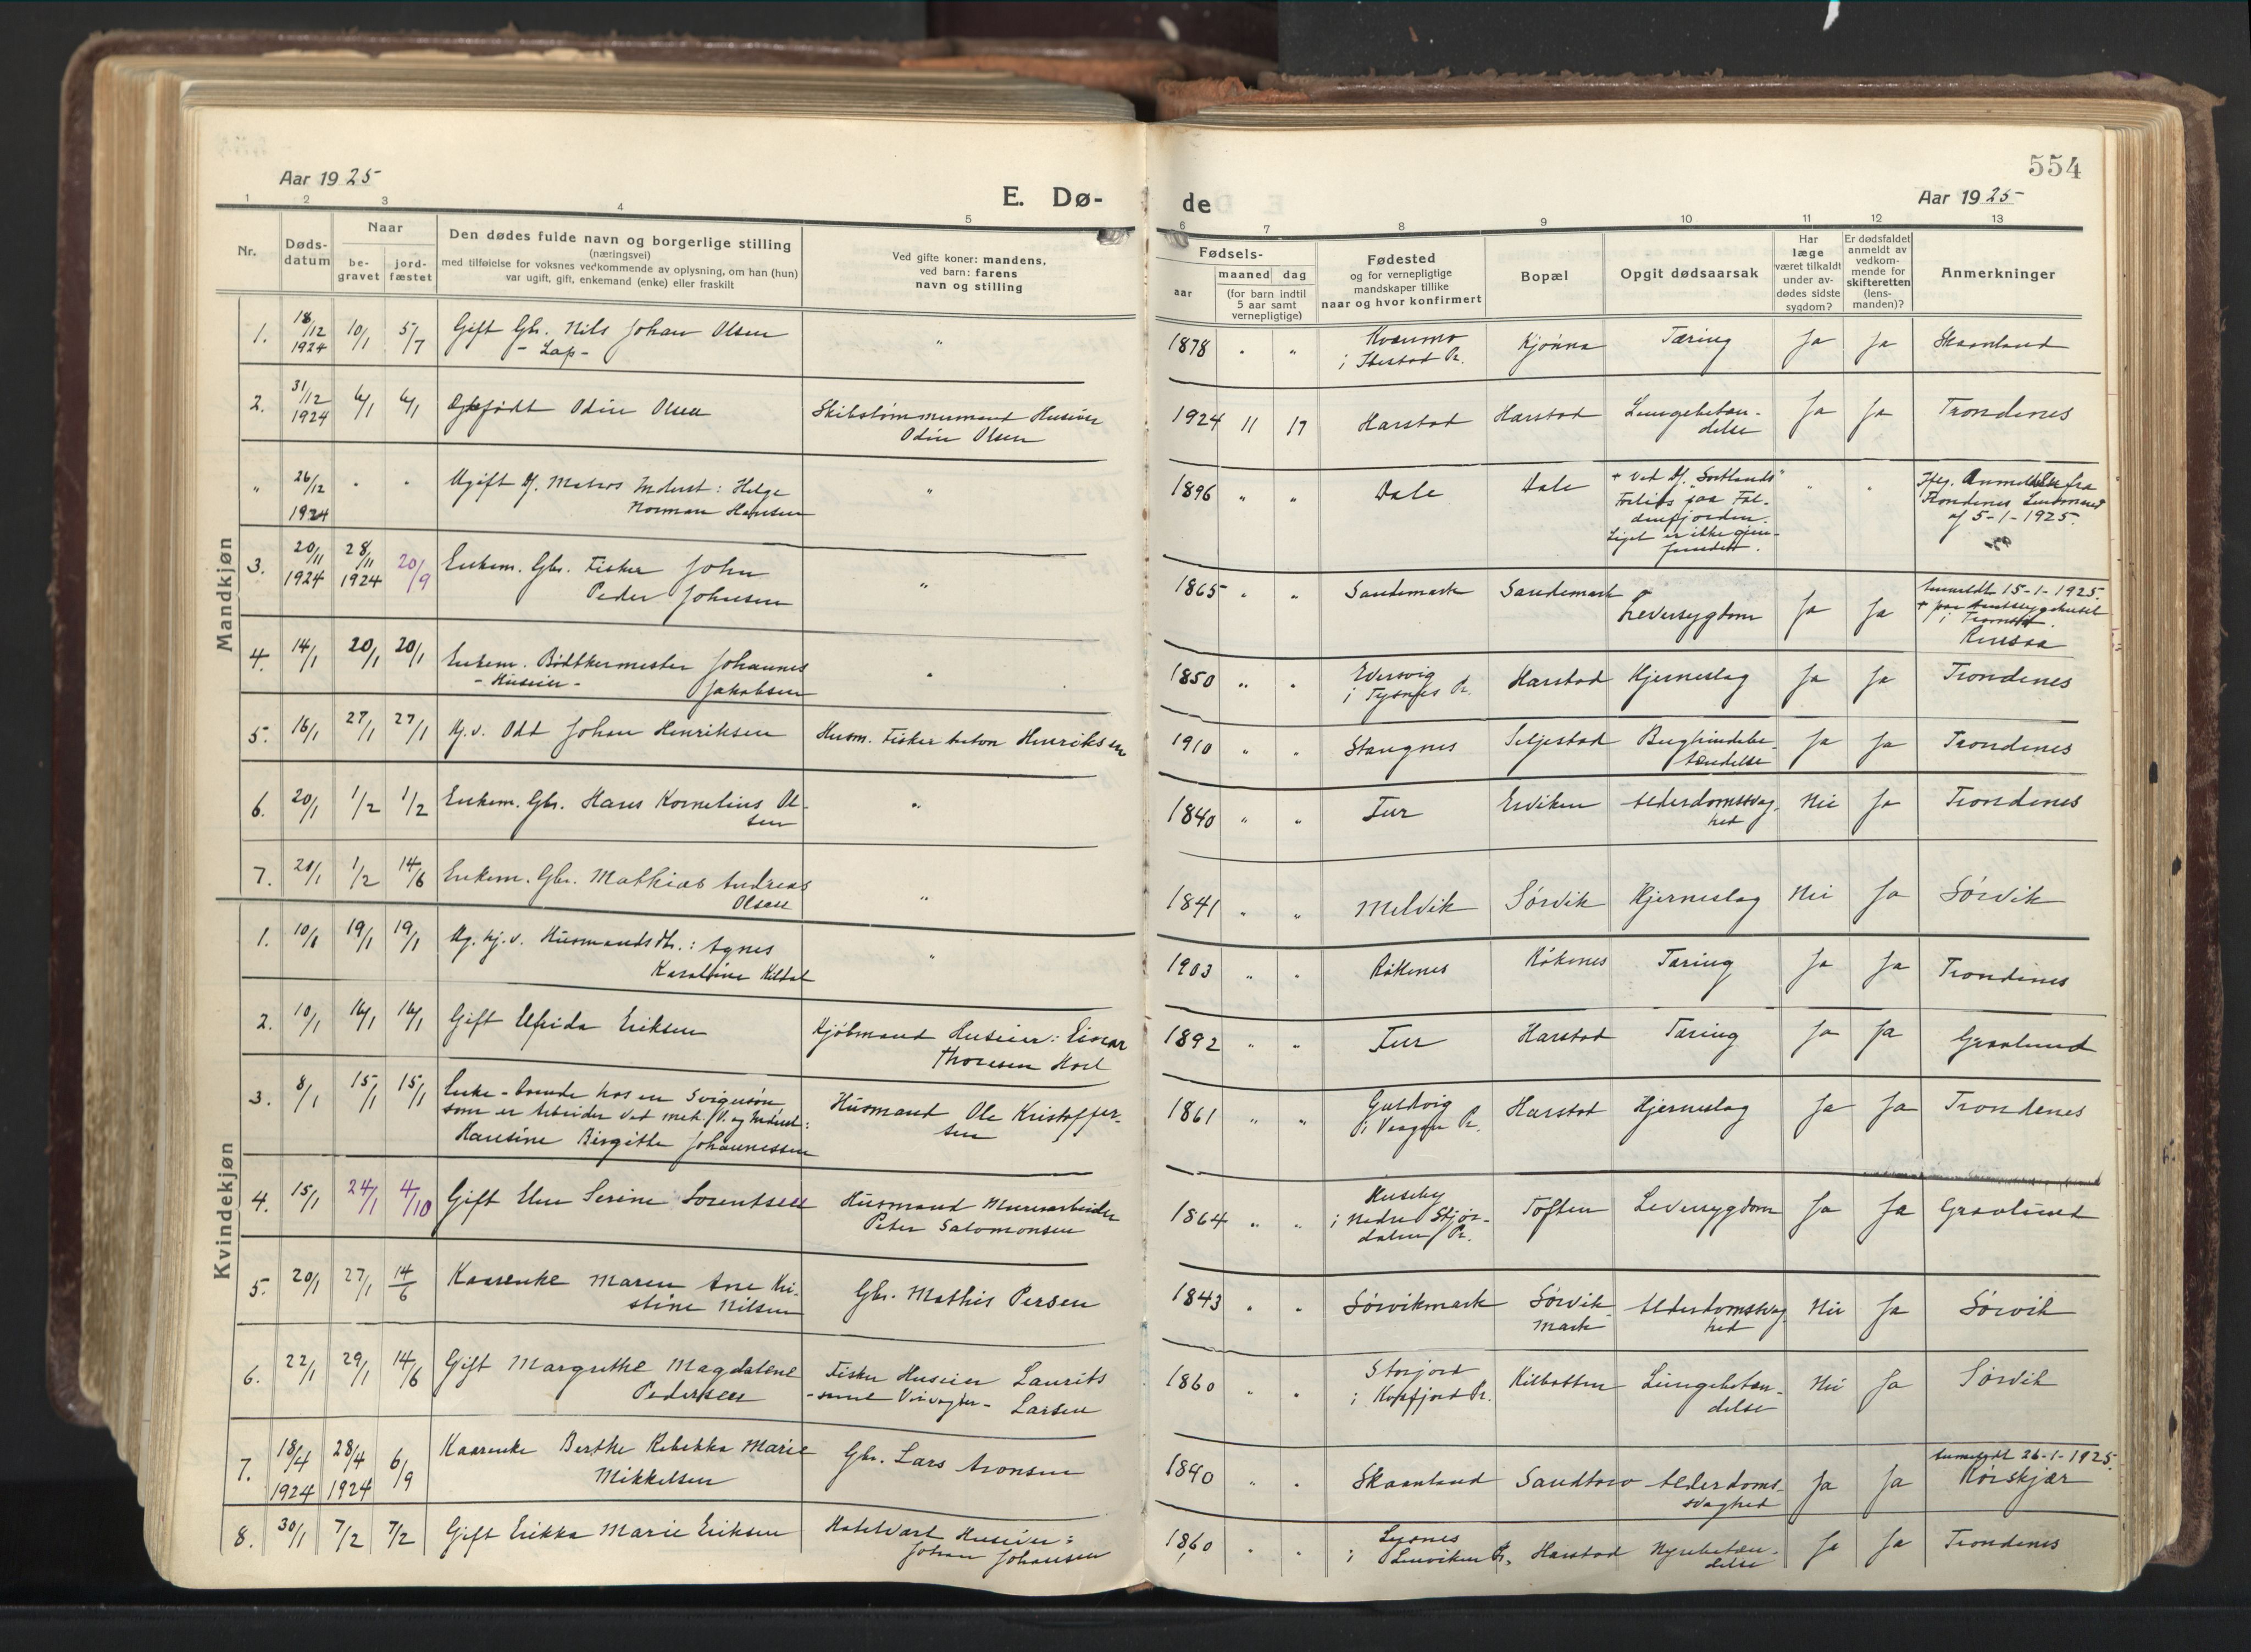 554
Aar 1925
E. Dø-
de
Aar 1925
1 2 3 4 5
6 7 8 9 10 11 12 13
Nr.
Døds-
datum
Naar
be-
gravet
jord-
fæstet
Den dødes fulde navn og borgerlige stilling
(næringsvei)
med tilføielse for voksnes vedkommende av oplysning, om han (hun)
var ugift, gift, enkemand (enke) eller fraskilt
Ved gifte koner: mandens,
ved barn: farens
navn og stilling
Fødsels-
aar
maaned dag
(for barn indtil
5 aar samt
vernepligtige)
Fødested
og for vernepligtige
mandskaper tillike
naar og hvor konfirmert
Bopæl
Opgit dødsaarsak
Har
læge
været tilkaldt
under av-
dødes sidste
sygdom?
Er dødsfaldet
anmeldt av
vedkom-
mende for
skifteretten
(lens-
manden)?
Anmerkninger
Mandkjøn
1. 18/12 1924 10/1 5/7 Gift Gbr. Nils Johan Olsen
- Lap -
" 1878 " " Kvænmo
i Ibestad Pr.
Kjønna Tæring Ja Ja Skaanland
2. 31/12 1924 6/1 6/1 Odin Olsen
Husier
Odin Olsen
1924 11 17 Harstad Harstad Lungebetæn-
delse
Ja Ja Trondenes
" 26/12 1924 " " Ugift Matros Helge
Norman Hansen
" 1896 " " Dale Dale + ved "Sortlands"
Forlis paa
fjorden.
Liget er ikke gjen-
fundet.
" " Anmeldelse fra
Trondenes Lensmand
af 5-1-1925.
3. 20/11 1924 28/11 1924 20/9 Enkem. Gbr. Fisker John
Peder Johnsen
" 1865 " " Sandemark Sandemark Leversygdom Ja Ja Anmeldt 15-1-1925.
+ paa
i Tromsø.
Rensaa
4. 14/1 20/1 20/1 Enkem. Bødtkermester Johannes
- Huseier - Jakobsen
" 1850 " "
i Tysnes Pr.
Harstad Hjerneslag Ja Ja Trondenes
5. 16/1 27/1 27/1 Odd Johan Henriksen
Husm. Fisker Anton Henriksen
1910 " " Stangnes Seljestad Bughindebe-
tændelse
Ja Ja Trondenes
6. 20/1 1/2 1/2 Enkem. Gbr. Hans Kornelius Ol-
sen
" 1840 " " Tur Erviken Alderdomssvag-
hed
Nei Ja Trondenes
7. 20/1 1/2 14/6 Enkem. Gbr. Mathias Andreas
Olsen
" 1841 " " Melvik Sørvik Hjerneslag Nei Ja Sørvik
Kvindekjøn
1. 10/1 19/1 19/1 Ug. hj.v. Husmandsdt.: Agnes
Karoline Kildal
" 1903 " " Røkenes Røkenes Tæring Ja Ja Trondenes
2. 10/1 16/1 16/1 Gift Elfrida Eriksen
Kjøbmand Huseier: Einar
Thoresen Hoel
1892 " " Tur Harstad Tæring Ja Ja Gravlund
3. 8/1 15/1 15/1 Enke - boende hos en Svigersøn
som er Arbeider ved mek. V. og Indust:
Hansine Birgitte Johannessen
Husmand Ole Kristoffer-
sen
1861 " " Gulvig
i Vaagan Pr.
Harstad Hjerneslag Ja Ja Trondenes
4. 15/1 24/1 4/10 Gift Elen Serine Sorentsen
Husmand Murerarbeider
Peter Salomonsen
1864 " " Huseby
i Nedre Stjør-
dalen Pr.
Toften Leversygdom Ja Ja Gravlund
5. 20/1 27/1 14/6 Kaarenke Maren Ane Kri-
stine Nilsen
Gbr. Mathis Persen
1843 " " Sørvikmark Sørvik-
mark
Alderdomssvag-
hed
Nei Ja Sørvik
6. 22/1 29/1 14/6 Gift Margrethe Magdalene
Pedersen
Fisker Huseier Laurits
- samt Veivogter - Larsen
1860 " " Storjord
i Kvæfjord Pr.
Kilbotten Lungebetæn-
delse
Nei Ja Sørvik
7. 18/4 1924 28/4 1924 6/9 Kaarenke Berthe Rebekka Marie
Mikkelsen
Gbr. Lars Aronsen
1840 " " Skaanland Sandtorv Alderdoms-
svaghed
Ja Ja Anmeldt 26-1-1925.
Rørskjær
8. 30/1 7/2 7/2 Gift Erikka Marie Eriksen
Hotelvært Huseier:
Johan Johansen
1860 " " Lysnes
i Lenviken Pr.
Harstad Nyrebetæn-
delse
Ja Ja Trondenes